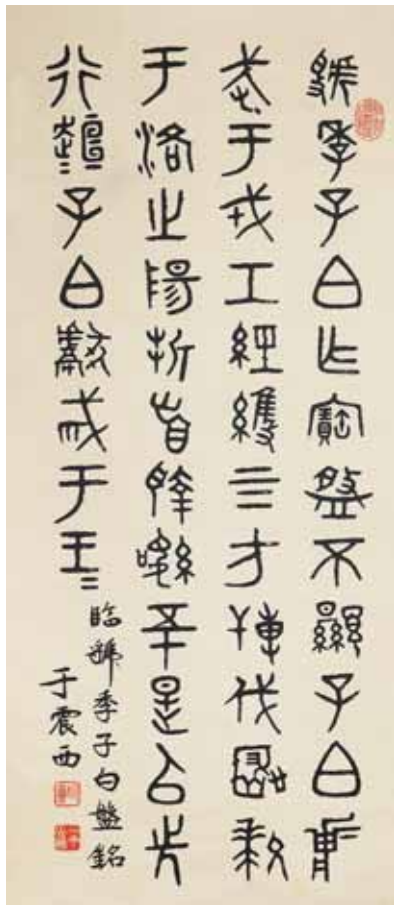 虢季子白乍寶盤不顯子白壯
武于戎工經維亖方搏伐玁狁
于洛之陽折首執訊五十是以先
行趄＝子白獻馘于王＝
臨虢季子白盤銘
于震西